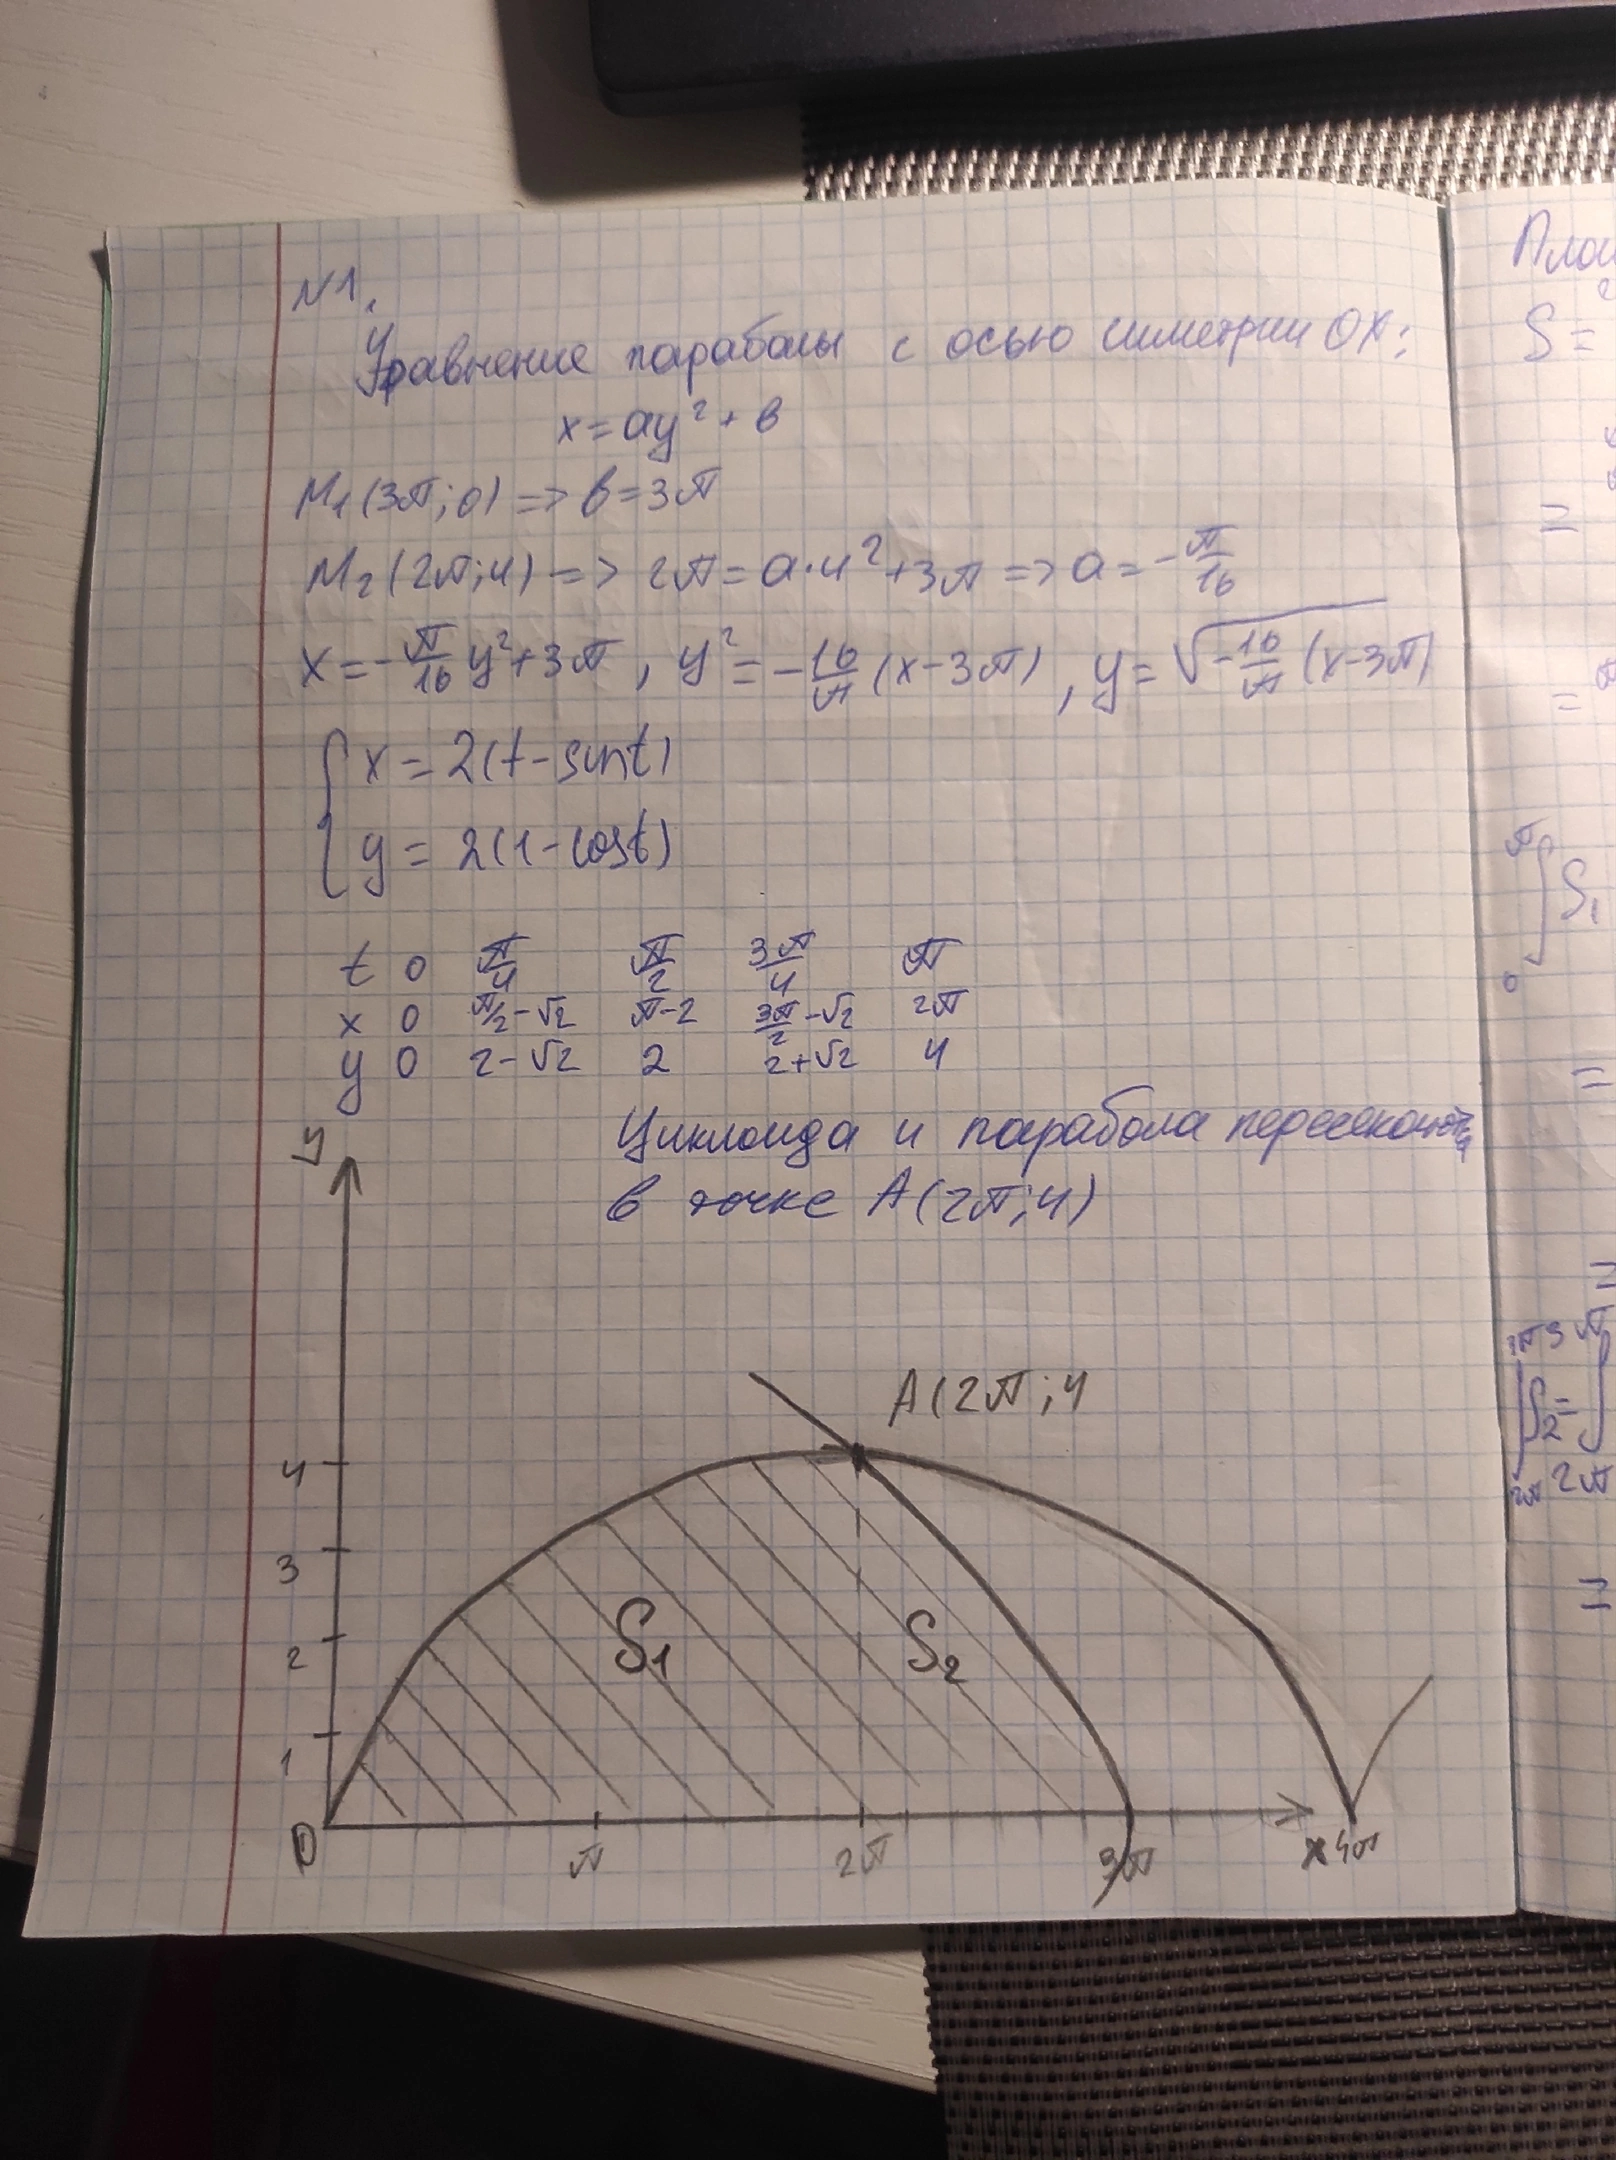 N1.
Уравнение параболы с осью симетрии OX:
x = ay² + b
M₁(3π; 0) => b = 3π
M₂(2π; 4) => 2π = a·4² + 3π => a = -π/16
x = -π/16 y² + 3π, y² = -16/π (x - 3π), y = √(-16/π (x - 3π))
{ x = 2(t - sint)
{ y = 2(1 - cost)
t 0 π/4 π/2 3π/4 π
x 0 π/2 - √2 π - 2 3π/2 - √2 2π
y 0 2 - √2 2 2 + √2 4
Циклоида и парабола пересекаются
в точке A(2π; 4)
y
A(2π; 4
4
3
2
1
S₁ S₂
0 π 2π 3π x 4π
S =
=
=
π
∫ S₁
0
=
=
3π 3π
∫ S₂ = ∫
2π 2π
=